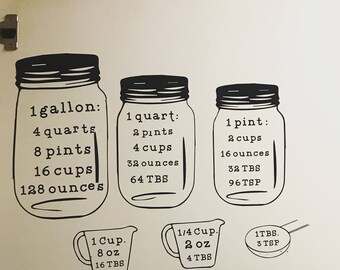 1 gallon:
4 quarts
8 pints
16 cups
128 ounces
1 quart:
2 pints
4 cups
32 ounces
64 TBS
1 pint:
2 cups
16 ounces
32 TBS
96 TSP
1 Cup.
8 oz
16 TBS
1/4 Cup.
2 oz
4 TBS
1 TBS.
3 TSP